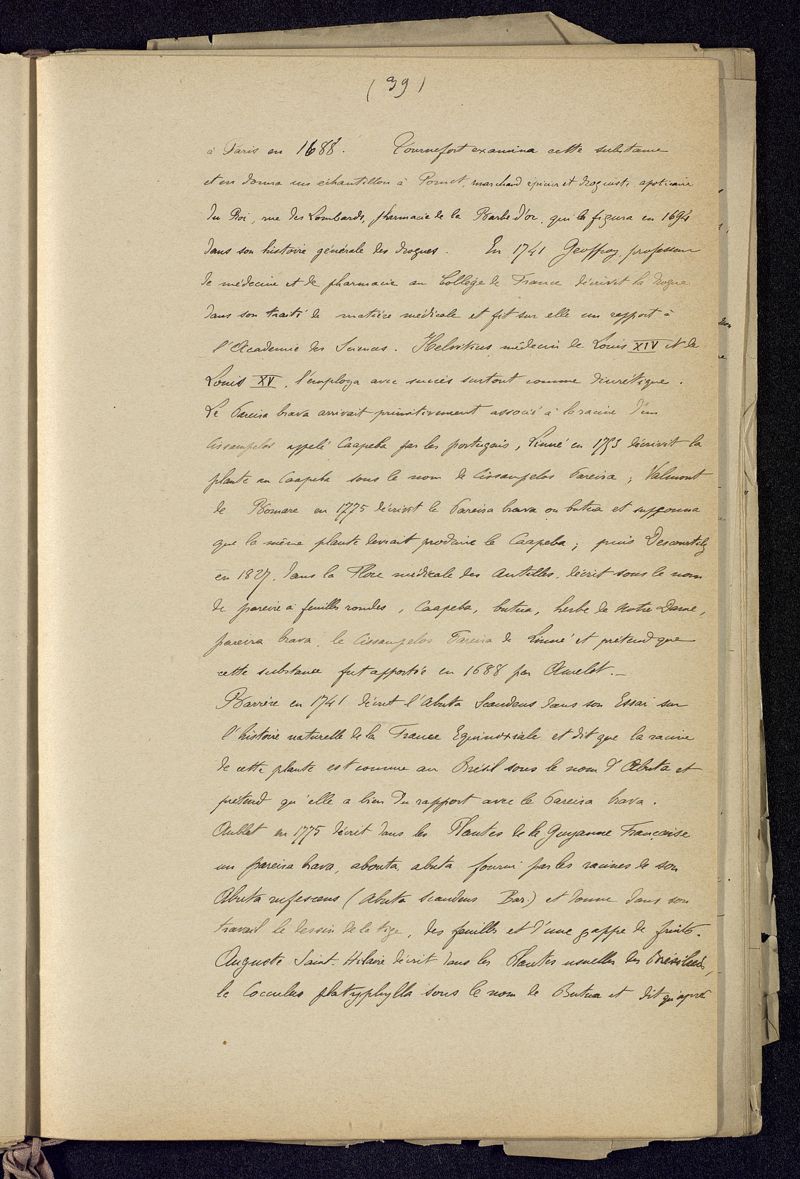 (39)
à Paris en 1688. Tournefort examina cette substance
et en donna un échantillon à Pomet, marchand épicier et droguiste apoticaire
du Roi, rue des Lombards, pharmacie de la Barbe d'or, qui la figura en 1694
dans son histoire générale des drogues. En 1741 Geoffroy, professeur
de médecine et de pharmacie au Collège de France décrivit la drogue
dans son traité de matière médicale et fit sur elle un rapport à
l'Académie des Sciences. Helvétius médecin de Louis XIV et de
Louis XV, l'employa avec succès surtout comme diurétique.
Le Pareira brava arrivait primitivement associé à la racine d'un
Cissampelos appelé Caapeba par les portugais, Linné en 1753 décrivit la
plante au Caapeba sous le nom de Cissampelos Pareira; Valmont
de Bomare en 1775 décrivit le Pareira brava ou butua et supposa
que la même plante devrait produire le Caapeba; puis Descourtilz
en 1827, dans la Flore médicale des Antilles, décrit sous le nom
de pareire à feuilles rondes, Caapeba, butua, herbe de Notre Dame,
pareira brava, le Cissampelos Pareira de Linné et prétend que
cette substance fut apportée en 1688 par Amelot. –
Barrère en 1741 décrit l'Abuta Scandens dans son Essai sur
l'histoire naturelle de la France Equinoxiale et dit que la racine
de cette plante est connue au Brésil sous le nom d'Abuta et
prétend qu'elle a bien du rapport avec le Pareira brava.
Aublet en 1775 décrit dans les Plantes de la Guyanne Françoise
un pareira brava, abouta, abuta fourni par les racines de son
Abuta rufescens (Abuta scandens Bar.) et donne dans son
travail le dessin de la tige, des feuilles et d'une grappe de fruits.
Auguste Saint-Hilaire décrit dans les Plantes usuelles des Brésiliens,
le Cocculus platyphylla sous le nom de Butua et dit qu'après